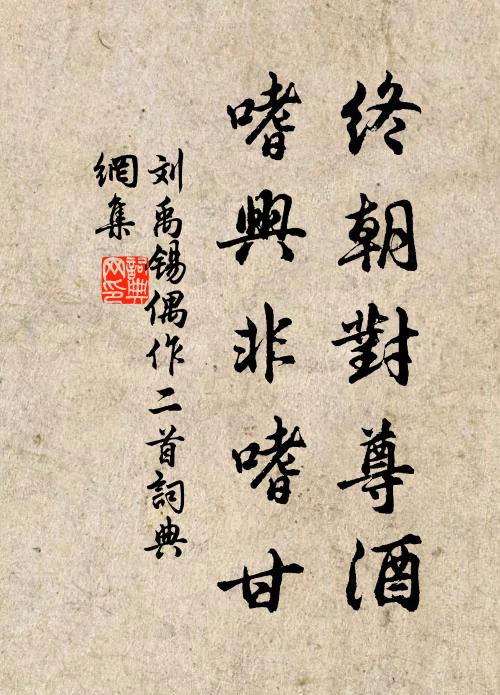 終朝對尊酒
嗜興非嗜甘
刘禹锡偶作二首詞典
網集
詞典
网印